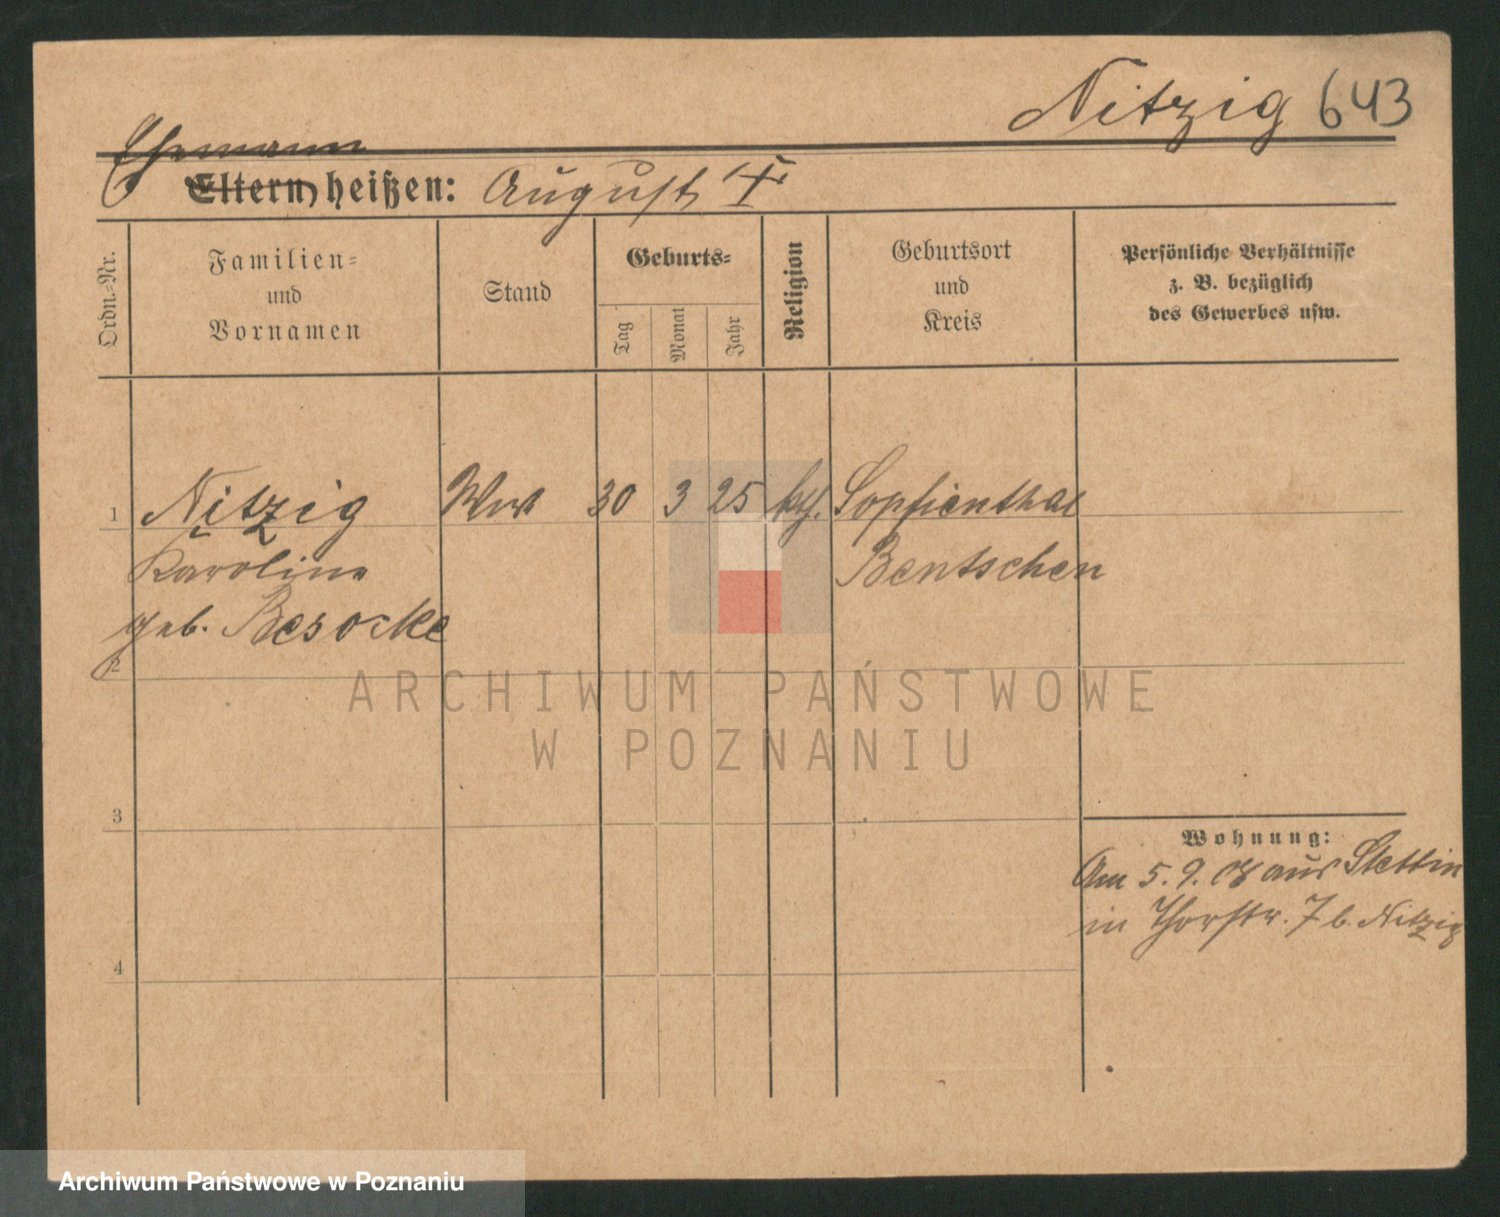 Nitzig 643
Ehemann
Eltern heißen: August
Ordn.-Nr.
Familien-
und
Vornamen
Stand
Geburts-
Tag
Monat
Jahr
Religion
Geburtsort
und
Kreis
Persönliche Verhältnisse
z. B. bezüglich
des Gewerbes usw.
1 Nitzig Ww 30 3 25 kth. Sopfienthal
Karoline Bentschen
geb. Besocke
2
ARCHIWUM PAŃSTWOWE
W POZNANIU
3
Wohnung:
Am 5. 9. 08 aus Stettin
in Thorstr. 7 b. Nitzig
4
Archiwum Państwowe w Poznaniu